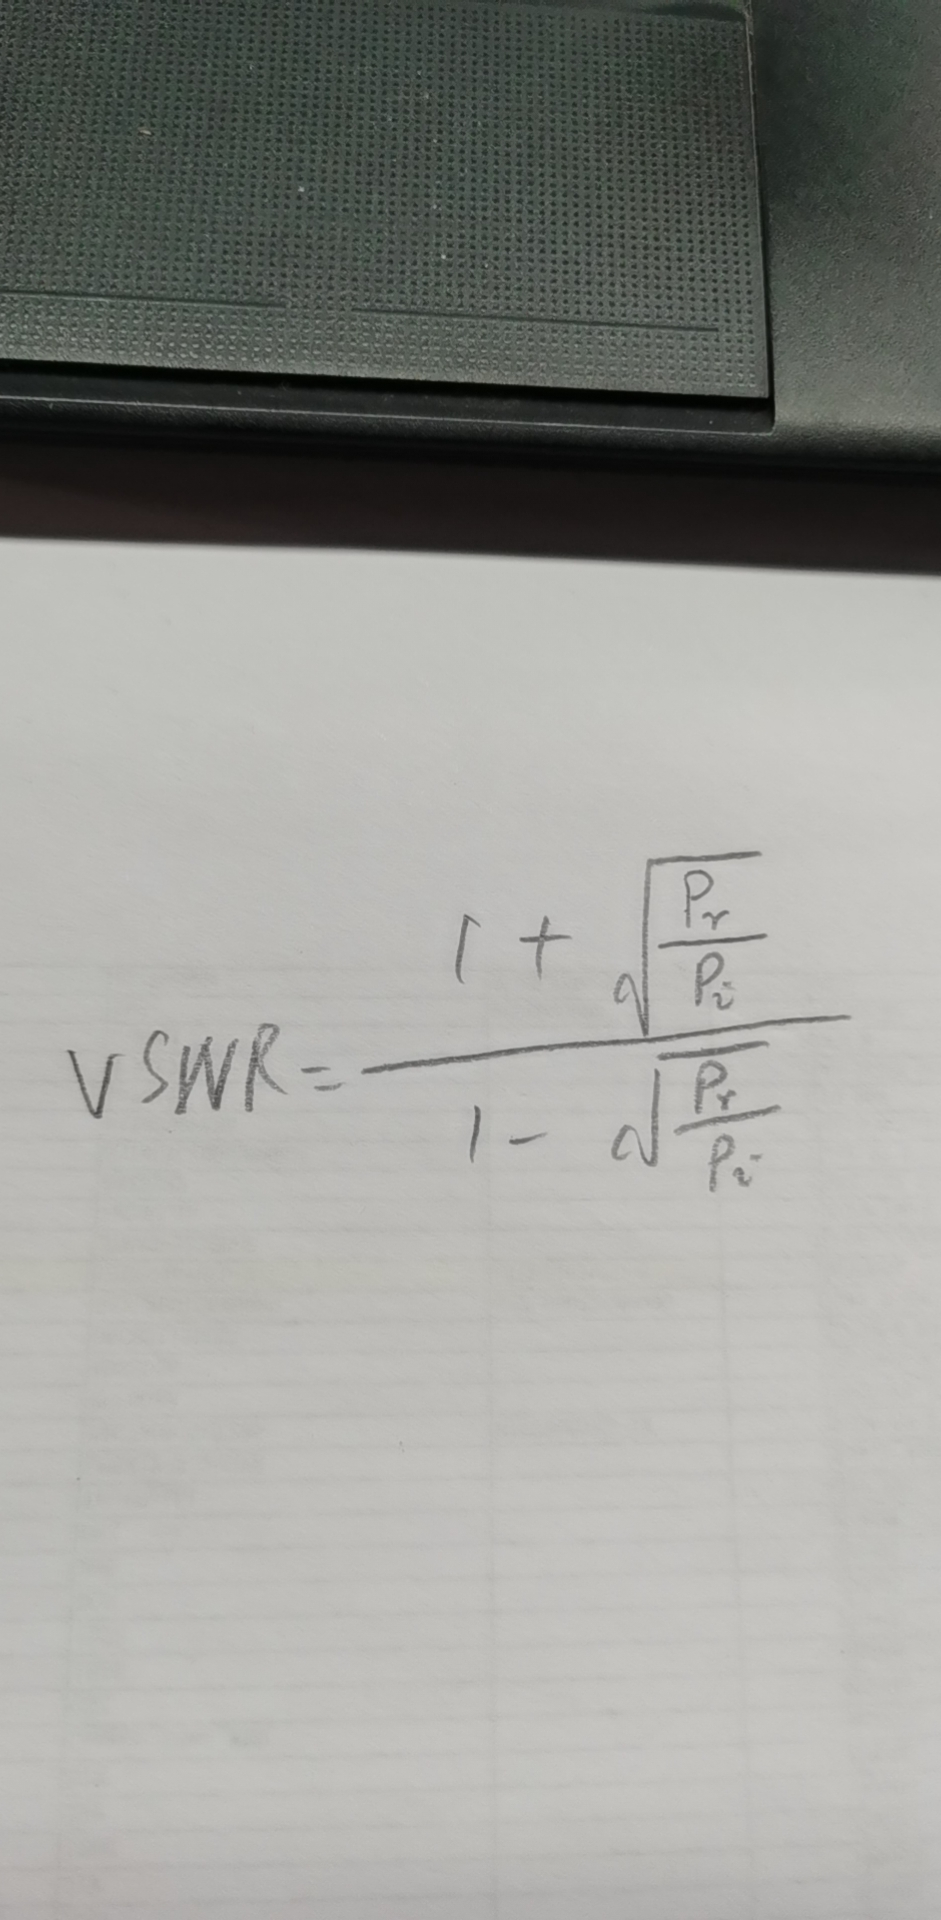 VSWR = (1 + √(Pr/Pi)) / (1 - √(Pr/Pi))